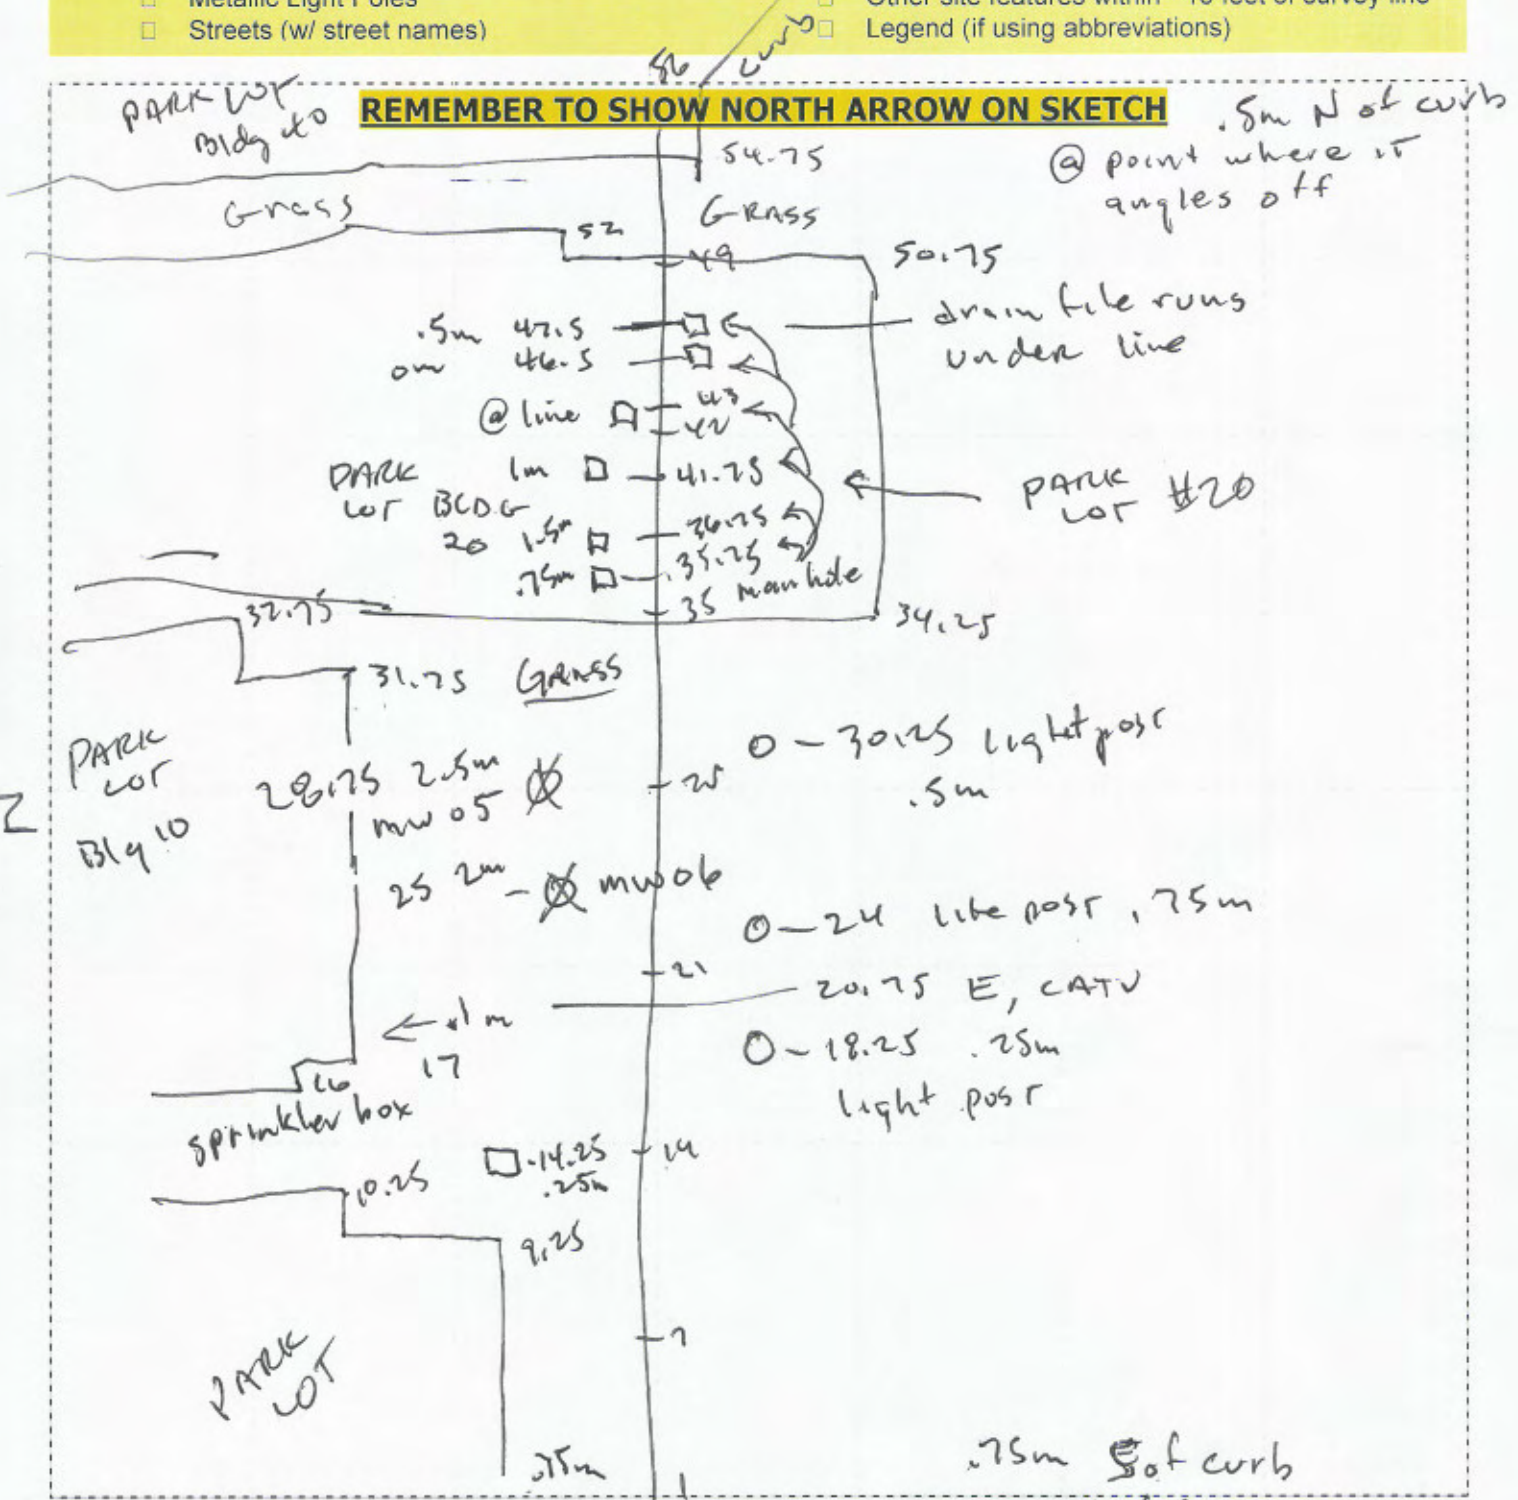 Metallic Light Poles
Streets (w/ street names)
Other site features within ~10 feet of survey line
Legend (if using abbreviations)
56
curb
REMEMBER TO SHOW NORTH ARROW ON SKETCH
PARK LOT
Bldg 20
.5m N of curb
@ point where it
angles off
54.75
Grass
GRASS
52
49
50.75
drain tile runs
under line
.5m 47.5
0m 46.5
@ line
43
42
PARK
LOT BLDG
20
1m
41.75
PARK
LOT #20
1.5m
36.75
.75m
35.75
35 manhole
32.75
34.25
31.75 GRASS
PARK
LOT
Bldg 10
28.75 2.5m
mw 05
28
O - 30.25 light post
.5m
25 2m - mw06
O - 24 lite post .75m
21
20.75 E, CATV
1m
17
O - 18.25 .25m
light post
16
sprinkler box
14.25
.25m
14
10.25
9.25
7
PARK
LOT
.75m
1
.75m E of curb